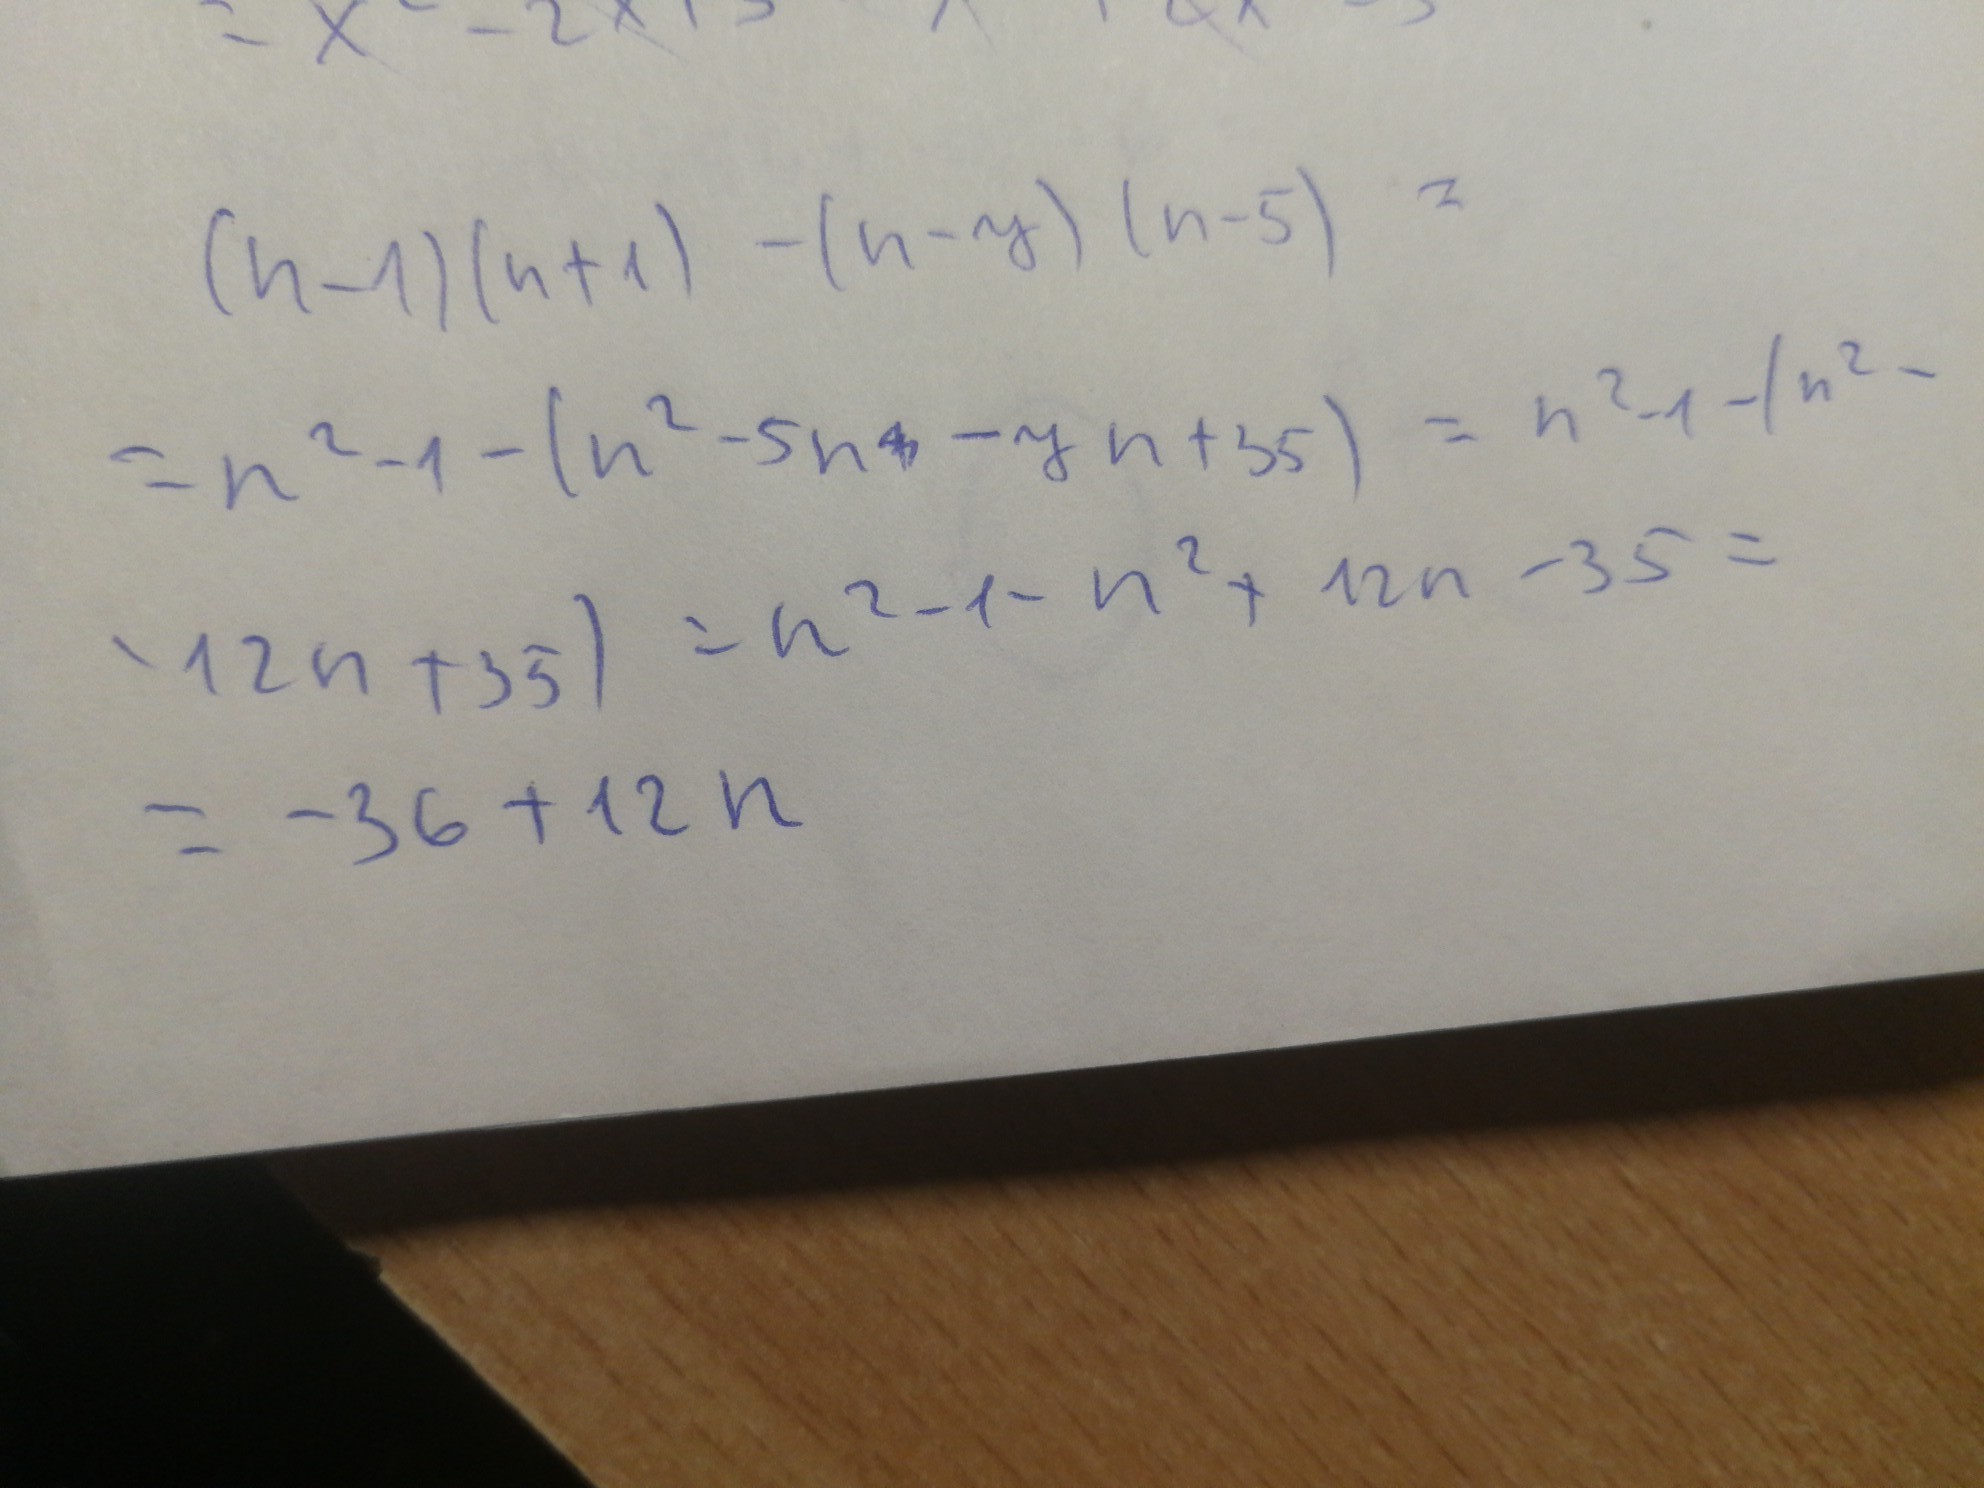 = x² - 2x + 3 - x² + 2x - 3
(n-1)(n+1) -(n-7)(n-5) =
= n²-1-(n²-5n -7n+35) = n²-1-(n²-
-12n+35) = n²-1-n²+12n-35=
= -36+12n